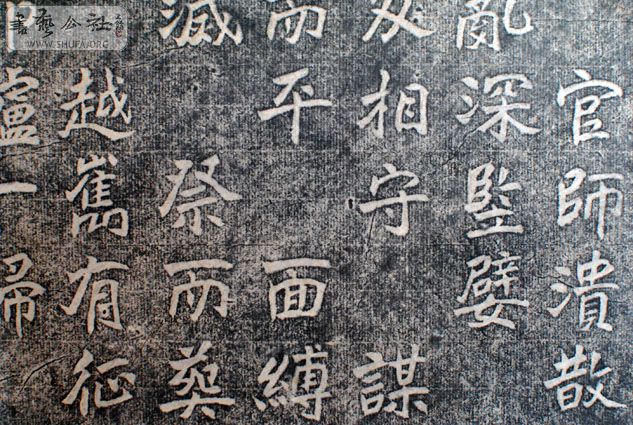 書藝公社
WWW.SHUFA.ORG
官師潰散
亂深豎嬖
相守 謀
而平 面縛
滅 祭而葬
越巂有征
一